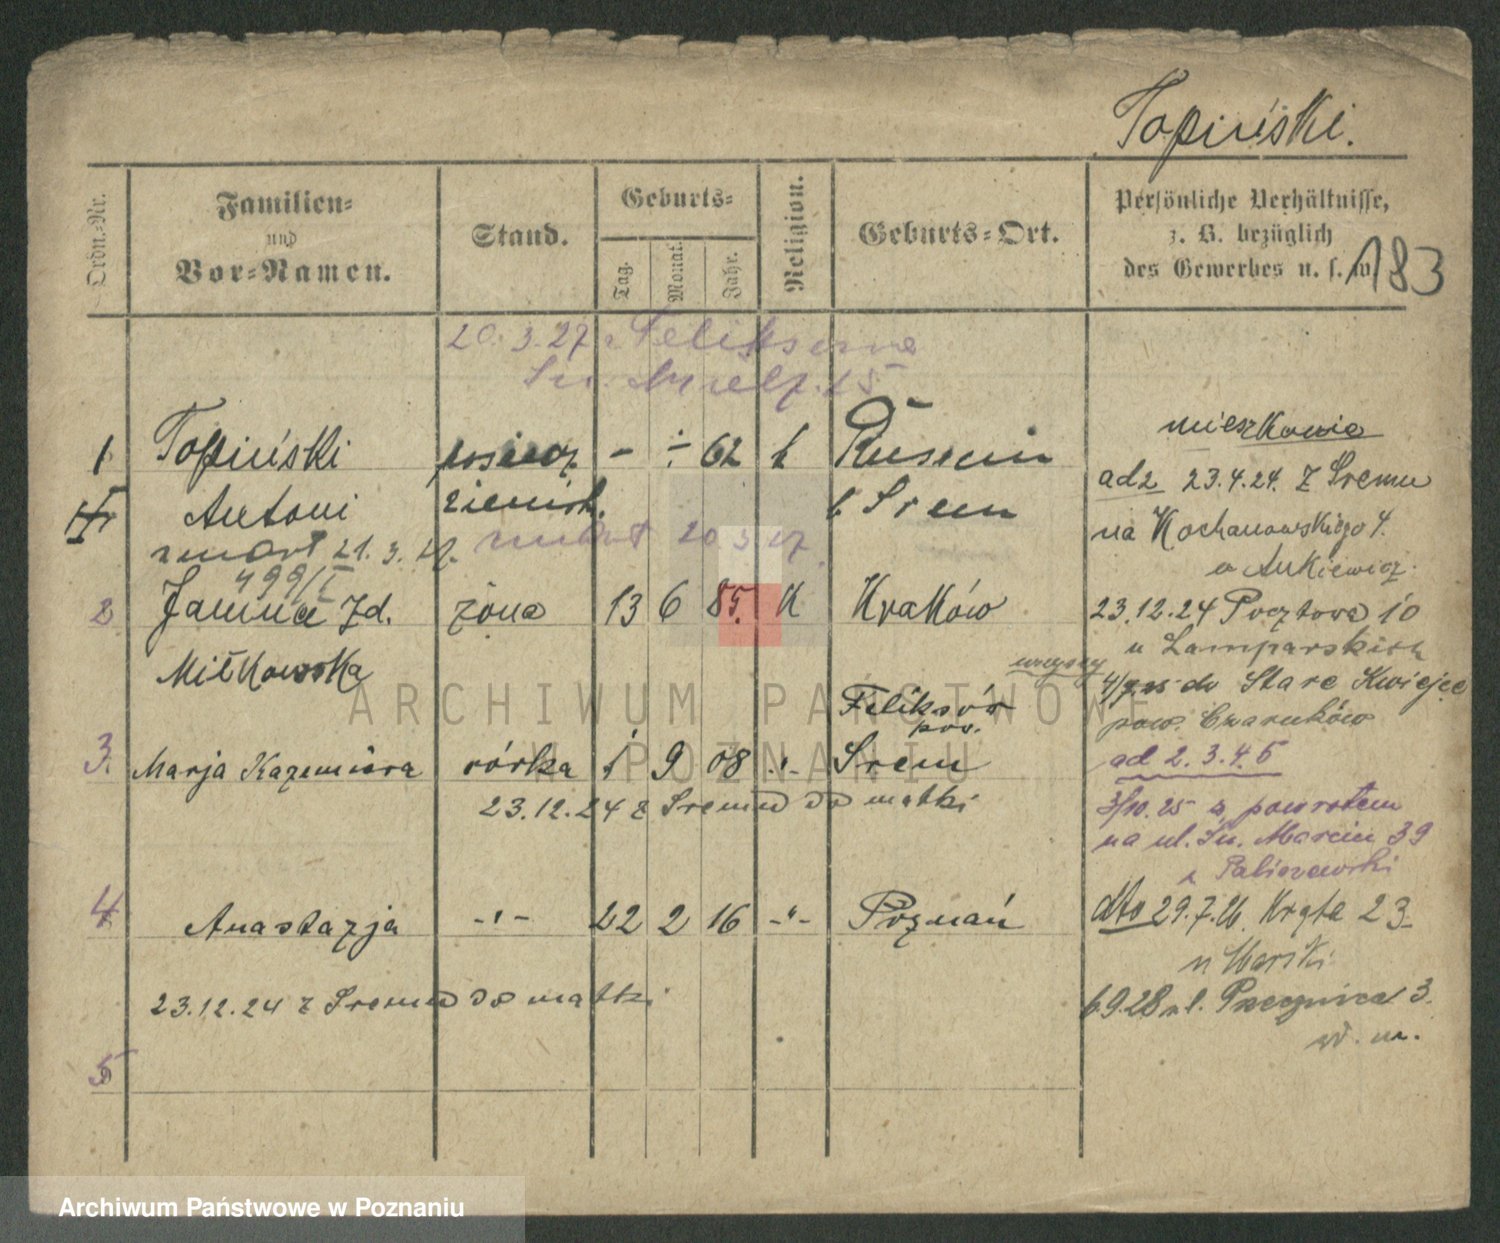 Topiński.
Ordn.-Nr.
Familien-
und
Vor-Namen.
Stand.
Geburts-
Tag.
Monat.
Jahr.
Religion.
Geburts-Ort.
Persönliche Verhältnisse,
z. B. bezüglich
des Gewerbes u. s. w.
183
20.3.27
15
1 Topiński - 62 k
Antoni ziemsk. Srem
zmarł 21.3.27. zmarł 20.3.27.
499/I
2 Janina Zd. żona 13 6 85. K Kraków
Miłkowska
3. Marja Kazimiera córka 1 9 08 -"- Srem
pow.
23.12.24 z Sremu do matki
4 Anastazja -"- 22 2 16 -"- Poznań
23.12.24 z Sremu do matki
5
mieszkanie
ad 2 23.4.24. z Sremu
na Kochanowskiego 4.
u Ankiewicz.
23.12.24 Pocztowa 10
u Lamparskich
do Stare
pow. Czarnków
ad 2. 3. 4. 5
3/10.25 z powrotem
na ul. Św. Marcin 39
dto 29.7.26. Kręta 23
6.9.28 ul. 3.
w. m.
ARCHIWUM PAŃSTWOWE
W POZNANIU
Archiwum Państwowe w Poznaniu